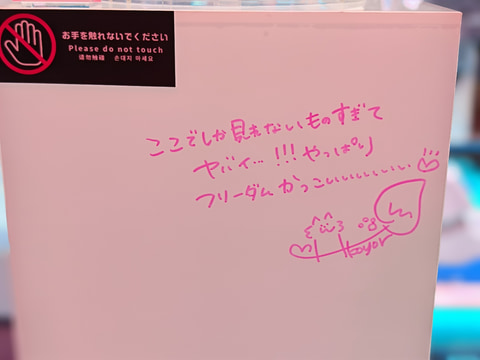 お手を触れないでください
Please do not touch
请勿触碰 손대지 마세요
ここでしか見れないものすぎて
ヤバイ…!!!やっぱり
フリーダムかっこいいいいいいい